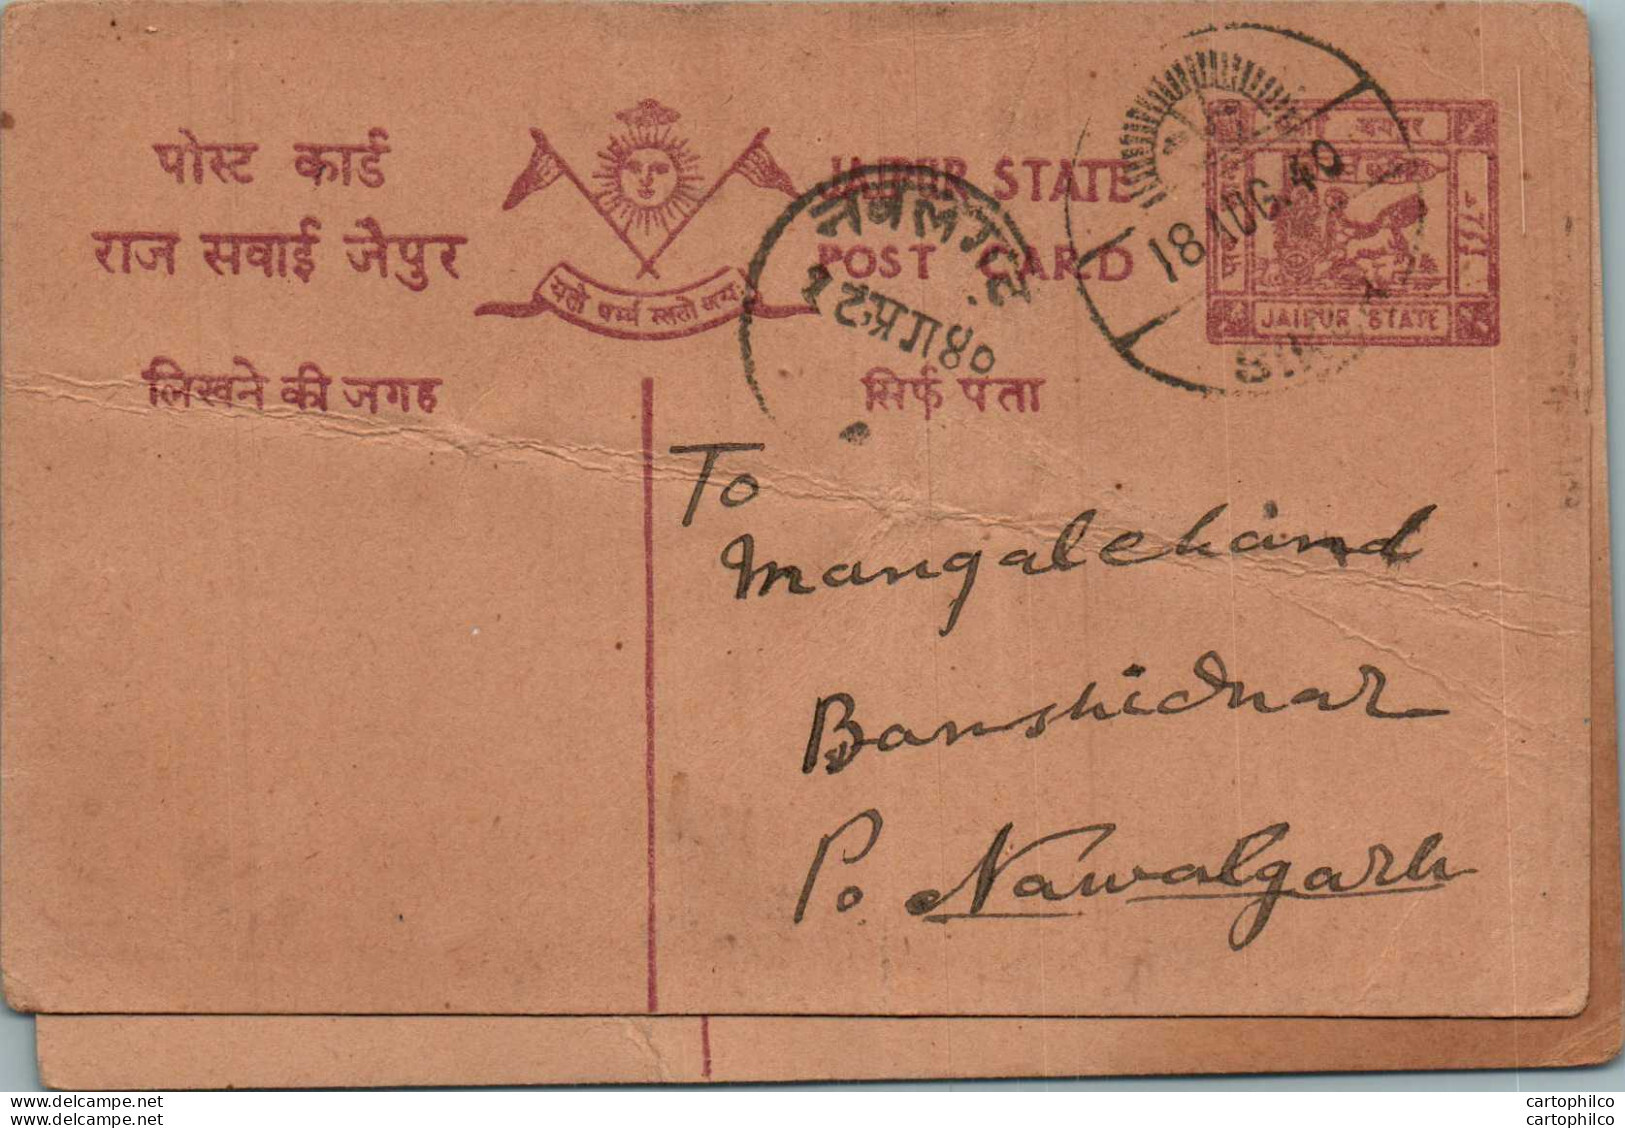 पोस्ट कार्ड
राज सवाई जैपुर
JAIPUR STATE
POST CARD
यतो धर्म्म स्ततो जय:
लिखने की जगह
सिर्फ पता
नवलगढ़
१८ अग ४०
18 AUG. 40
JAIPUR STATE
To
Mangalchand
Banshidhar
Po. Nawalgarh
www.delcampe.net
www.delcampe.net
cartophilco
cartophilco